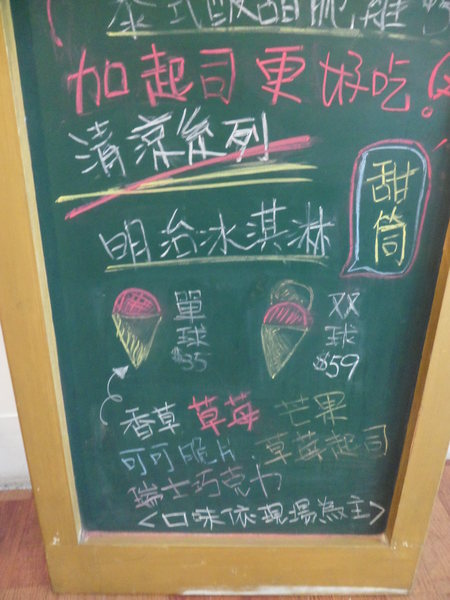 泰式酸甜脆雞
加起司更好吃!
清涼系列
甜筒
明治冰淇淋
單球 $35
双球 $59
香草 草莓 芒果
可可脆片 草莓起司
瑞士巧克力
<口味依現場為主>